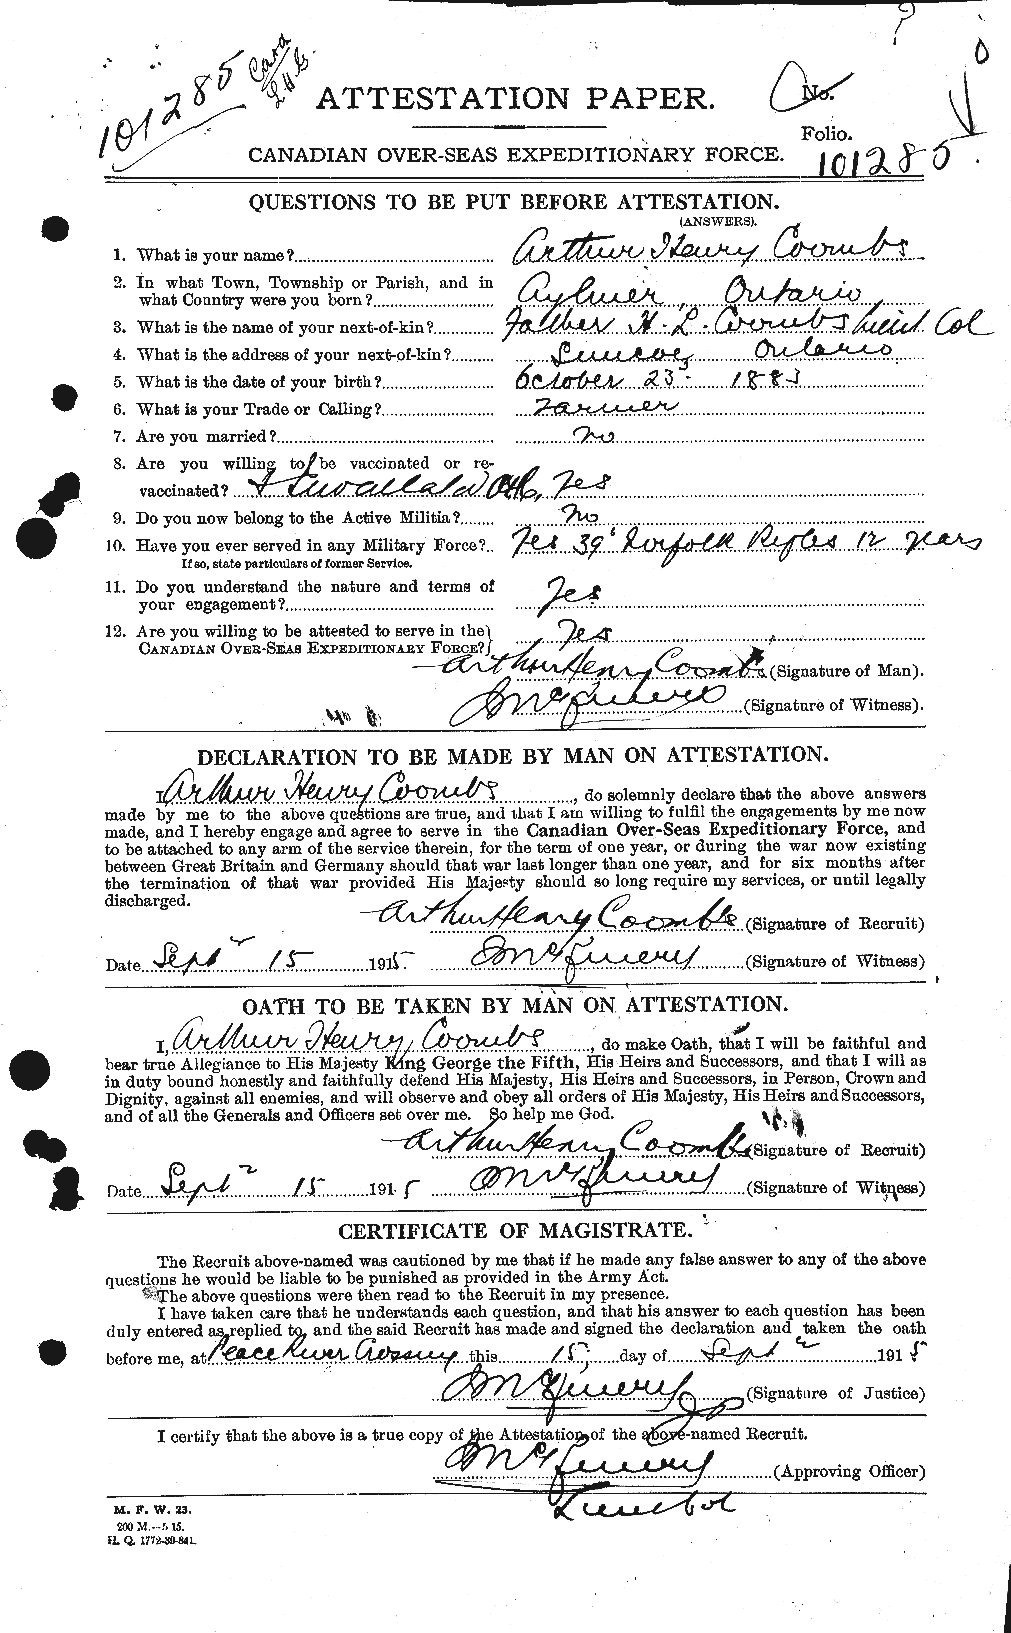 101285
ATTESTATION PAPER.
No.
Folio.
CANADIAN OVER-SEAS EXPEDITIONARY FORCE.
101285
QUESTIONS TO BE PUT BEFORE ATTESTATION.
(ANSWERS).
1. What is your name? Arthur Henry Coombs
2. In what Town, Township or Parish, and in
what Country were you born? Aylmer, Ontario
3. What is the name of your next-of-kin? Father H. L. Coombs Lieut Col
4. What is the address of your next-of-kin? Simcoe, Ontario
5. What is the date of your birth? October 23 1883
6. What is your Trade or Calling? Farmer
7. Are you married? No
8. Are you willing to be vaccinated or re-
vaccinated? Yes
9. Do you now belong to the Active Militia? No
10. Have you ever served in any Military Force? Yes 39 Norfolk Rifles 12 years
If so, state particulars of former Service.
11. Do you understand the nature and terms of
your engagement? Yes
12. Are you willing to be attested to serve in the
CANADIAN OVER-SEAS EXPEDITIONARY FORCE? Yes
Arthur Henry Coombs (Signature of Man).
(Signature of Witness).
DECLARATION TO BE MADE BY MAN ON ATTESTATION.
I, Arthur Henry Coombs, do solemnly declare that the above answers
made by me to the above questions are true, and that I am willing to fulfil the engagements by me now
made, and I hereby engage and agree to serve in the Canadian Over-Seas Expeditionary Force, and
to be attached to any arm of the service therein, for the term of one year, or during the war now existing
between Great Britain and Germany should that war last longer than one year, and for six months after
the termination of that war provided His Majesty should so long require my services, or until legally
discharged.
Arthur Henry Coombs (Signature of Recruit)
Date Sept 15 1915. (Signature of Witness)
OATH TO BE TAKEN BY MAN ON ATTESTATION.
I, Arthur Henry Coombs, do make Oath, that I will be faithful and
bear true Allegiance to His Majesty King George the Fifth, His Heirs and Successors, and that I will as
in duty bound honestly and faithfully defend His Majesty, His Heirs and Successors, in Person, Crown and
Dignity, against all enemies, and will observe and obey all orders of His Majesty, His Heirs and Successors,
and of all the Generals and Officers set over me. So help me God.
Arthur Henry Coombs (Signature of Recruit)
Date Sept 15 1915 (Signature of Witness)
CERTIFICATE OF MAGISTRATE.
The Recruit above-named was cautioned by me that if he made any false answer to any of the above
questions he would be liable to be punished as provided in the Army Act.
The above questions were then read to the Recruit in my presence.
I have taken care that he understands each question, and that his answer to each question has been
duly entered as replied to, and the said Recruit has made and signed the declaration and taken the oath
before me, at Peace River Crossing this 15 day of Sept 1915
(Signature of Justice)
I certify that the above is a true copy of the Attestation of the above-named Recruit.
(Approving Officer)
Lieut Col
M. F. W. 23.
200 M.--5 15.
H. Q. 1772-39-841.